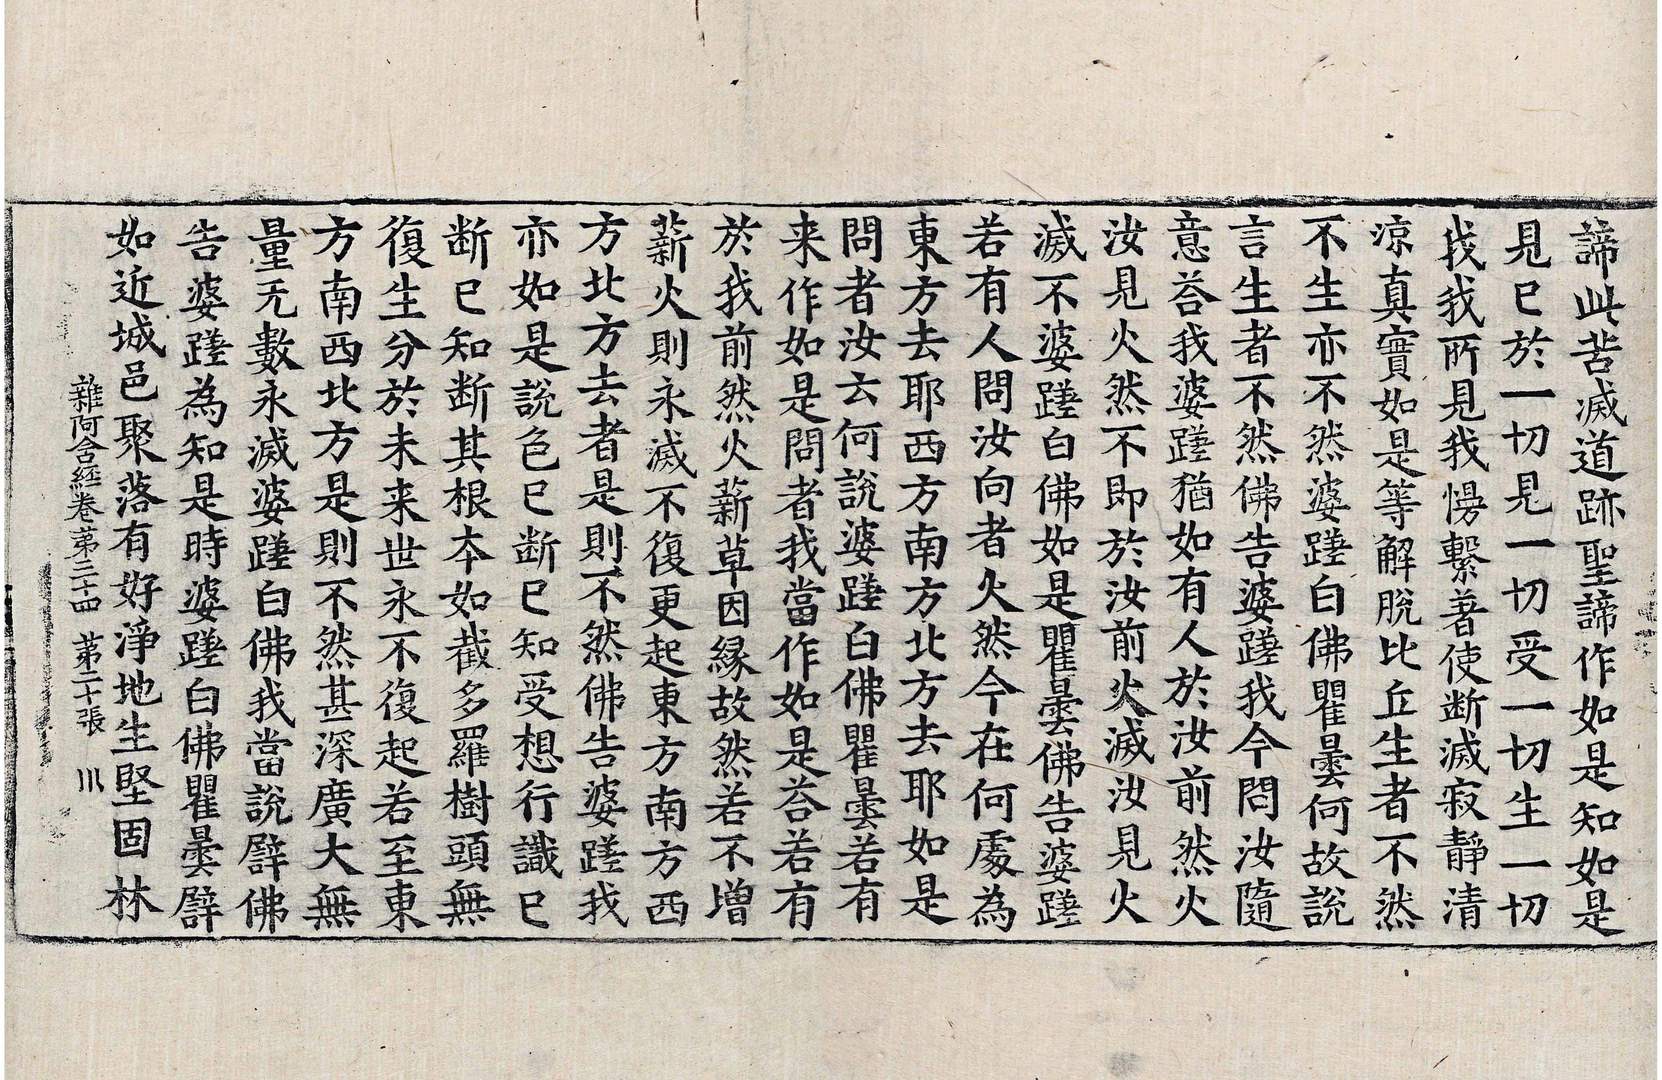 諦此苦滅道跡聖諦作如是知如是
見已於一切見一切受一切生一切
我我所見我慢繫著使断滅寂靜清
涼真實如是等解脫比丘生者不然
不生亦不然婆蹉白佛瞿曇何故說
言生者不然佛告婆蹉我今問汝隨
意荅我婆蹉猶如有人於汝前然火
汝見火然不即於汝前火滅汝見火
滅不婆蹉白佛如是瞿曇佛告婆蹉
若有人問汝向者火然今在何處為
東方去耶西方南方北方去耶如是
問者汝云何說婆蹉白佛瞿曇若有
来作如是問者我當作如是荅若有
於我前然火薪草因縁故然若不增
薪火則永滅不復更起東方南方西
方北方去者是則不然佛告婆蹉我
亦如是說色已断已知受想行識已
断已知断其根夲如截多羅樹頭無
復生分於未来世永不復起若至東
方南西北方是則不然甚深廣大無
量无數永滅婆蹉白佛我當說譬佛
告婆蹉為知是時婆蹉白佛瞿曇譬
如近城邑聚落有好淨地生堅固林
雜阿含経巻第三十四 第二十張 川